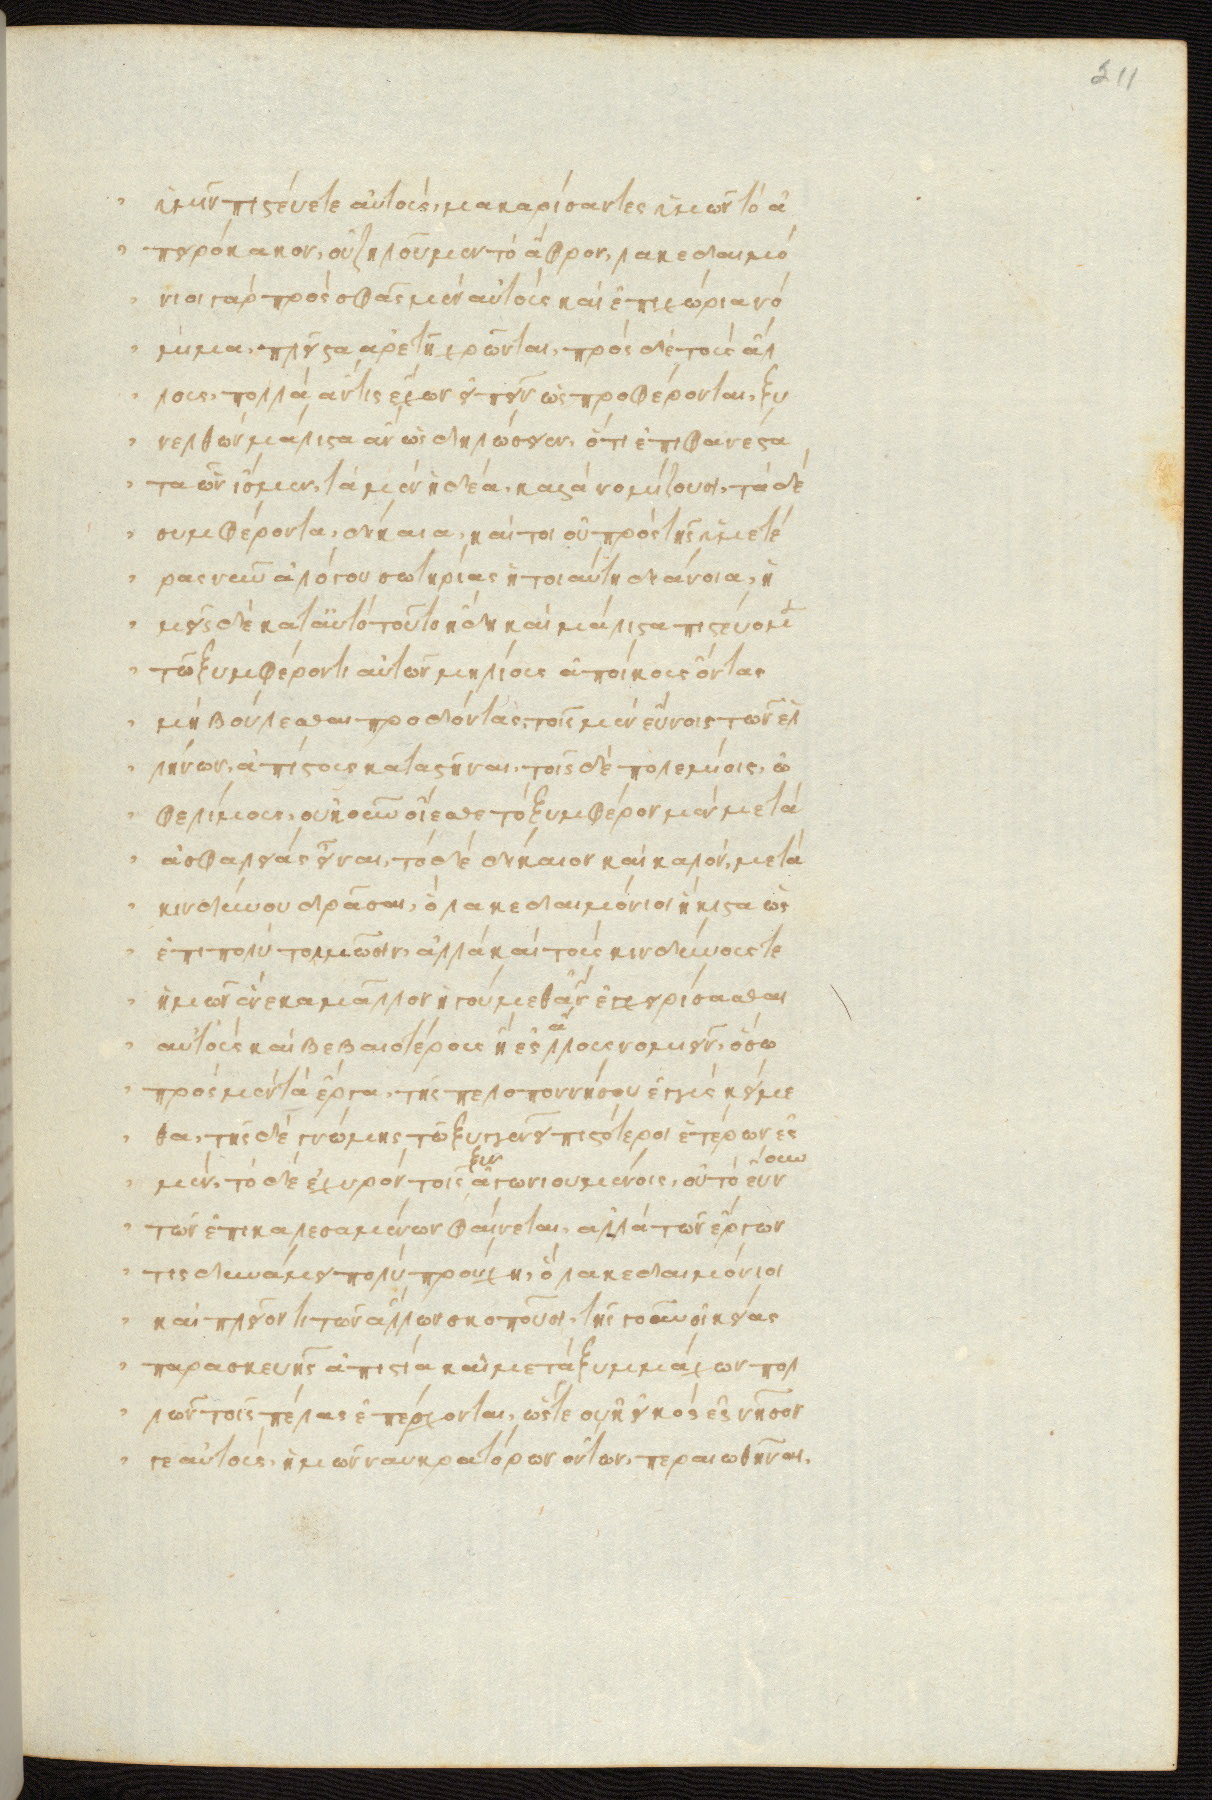 211
ἡμῖν πιστεύετε αὐτοὺς, μακαρίσαντες ἡμῶν τὸ ἀ
πειρόκακον, οὐ ζηλοῦμεν τὸ ἄφρον, λακεδαιμό
νιοι γὰρ πρὸς σφᾶς μὲν αὐτοὺς καὶ ἐπιχώρια νό
μιμα, πλεῖστα ἀρετῇ χρῶνται, πρὸς δὲ τοὺς ἄλ
λους, πολλὰ ἄν τις ἔχων εἰπεῖν ὡς προφέρονται, ξυ
νελθὼν μάλιστα ἂν ὡς δηλώσειεν, ὅτι ἐπιφανέστα
τα ὧν ἴσμεν, τὰ μὲν ἡδέα, καλὰ νομίζουσι, τὰ δὲ
συμφέροντα, δίκαια, καίτοι οὐ πρὸς τῆς ἡμετέ
ρας νῦν ἀλόγου σωτηρίας ἡ τοιαύτη διάνοια, ἡ
μεῖς δὲ κατ' αὐτὸ τοῦτο ἤδη καὶ μάλιστα πιστεύομ
τῷ ξυμφέροντι αὐτῶν μηλίους ἀποίκους ὄντας
μὴ βούλεσθαι προδόντας, τοῖς μὲν εὔνοις τῶν ἑλ
λήνων, ἀπίστους καταστῆναι, τοῖς δὲ πολεμίοις, ὠ
φελίμους, οὐκ οὖν οἴεσθε τὸ ξυμφέρον μὲν μετὰ
ἀσφαλείας εἶναι, τὸ δὲ δίκαιον καὶ καλὸν, μετὰ
κινδύνου δρᾶσθαι, ὃ λακεδαιμόνιοι ἥκιστα ὡς
ἐπιπολὺ τολμῶσιν, ἀλλὰ καὶ τοὺς κινδύνους τε
ἡμῶν ἕνεκα μᾶλλον ἡγούμεθ' ἂν ἐγχειρίσασθαι
αὐτοὺς καὶ βεβαιοτέρους ἢ ἐς ἄλλους νομιεῖν, ὅσω
πρὸς μὲν τὰ ἔργα, τῆς πελοποννήσου ἐγγὺς κείμε
θα, τῆς δὲ γνώμης τῷ ξυγγενεῖ πιστότεροι ἑτέρων ἐσ
μὲν, τὸ δὲ ἐχυρὸν τοῖς ξυναγωνιουμένοις, οὐ τὸ εὔνουν
τῶν ἐπικαλεσαμένων φαίνεται, ἀλλὰ τῶν ἔργων
τις δυνάμει πολὺ προύχη, ὃ λακεδαιμόνιοι
καὶ πλεῖόν τι τῶν ἄλλων σκοποῦσι, τῆς γοῦν οἰκείας
παρασκευῆς ἀπιστία καὶ μετὰ ξυμμάχων πολ
λῶν τοῖς πέλας ἐπέρχονται, ὥστε οὐκ εἰκὸς ἐς νῆσον
γε αὐτοὺς, ἡμῶν ναυκρατόρων ὄντων, περαιωθῆναι.